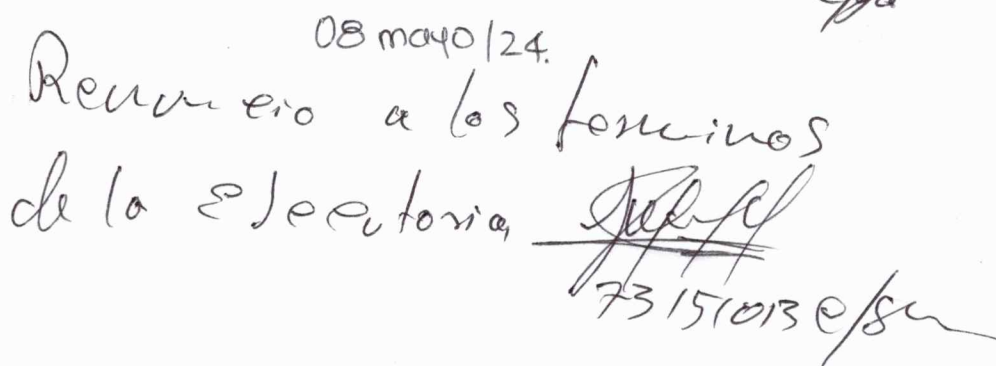 08 mayo/24.
Renuncio a los terminos
de la Ejecutoria
73151013 c/gena